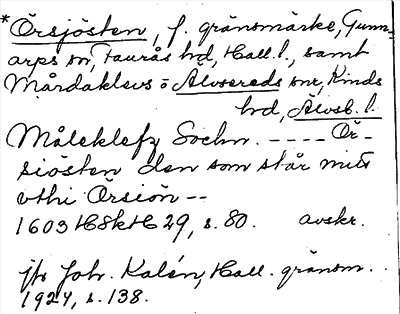 *Örsjösten, f. gränsmärke, Gunn-
arps sn, Faurås hd, Hall. l., samt
Mårdaklevs o Älvsereds snr, Kinds
hd, Älvsb. l.
Måleklefz Sochn. ---- Ör-
siösten den som står mitt
vthi Örsiön --
1603 HSkH 29, s. 80. avskr.
jfr Joh. Kalén, Hall. gränsm..
1924, s. 138.